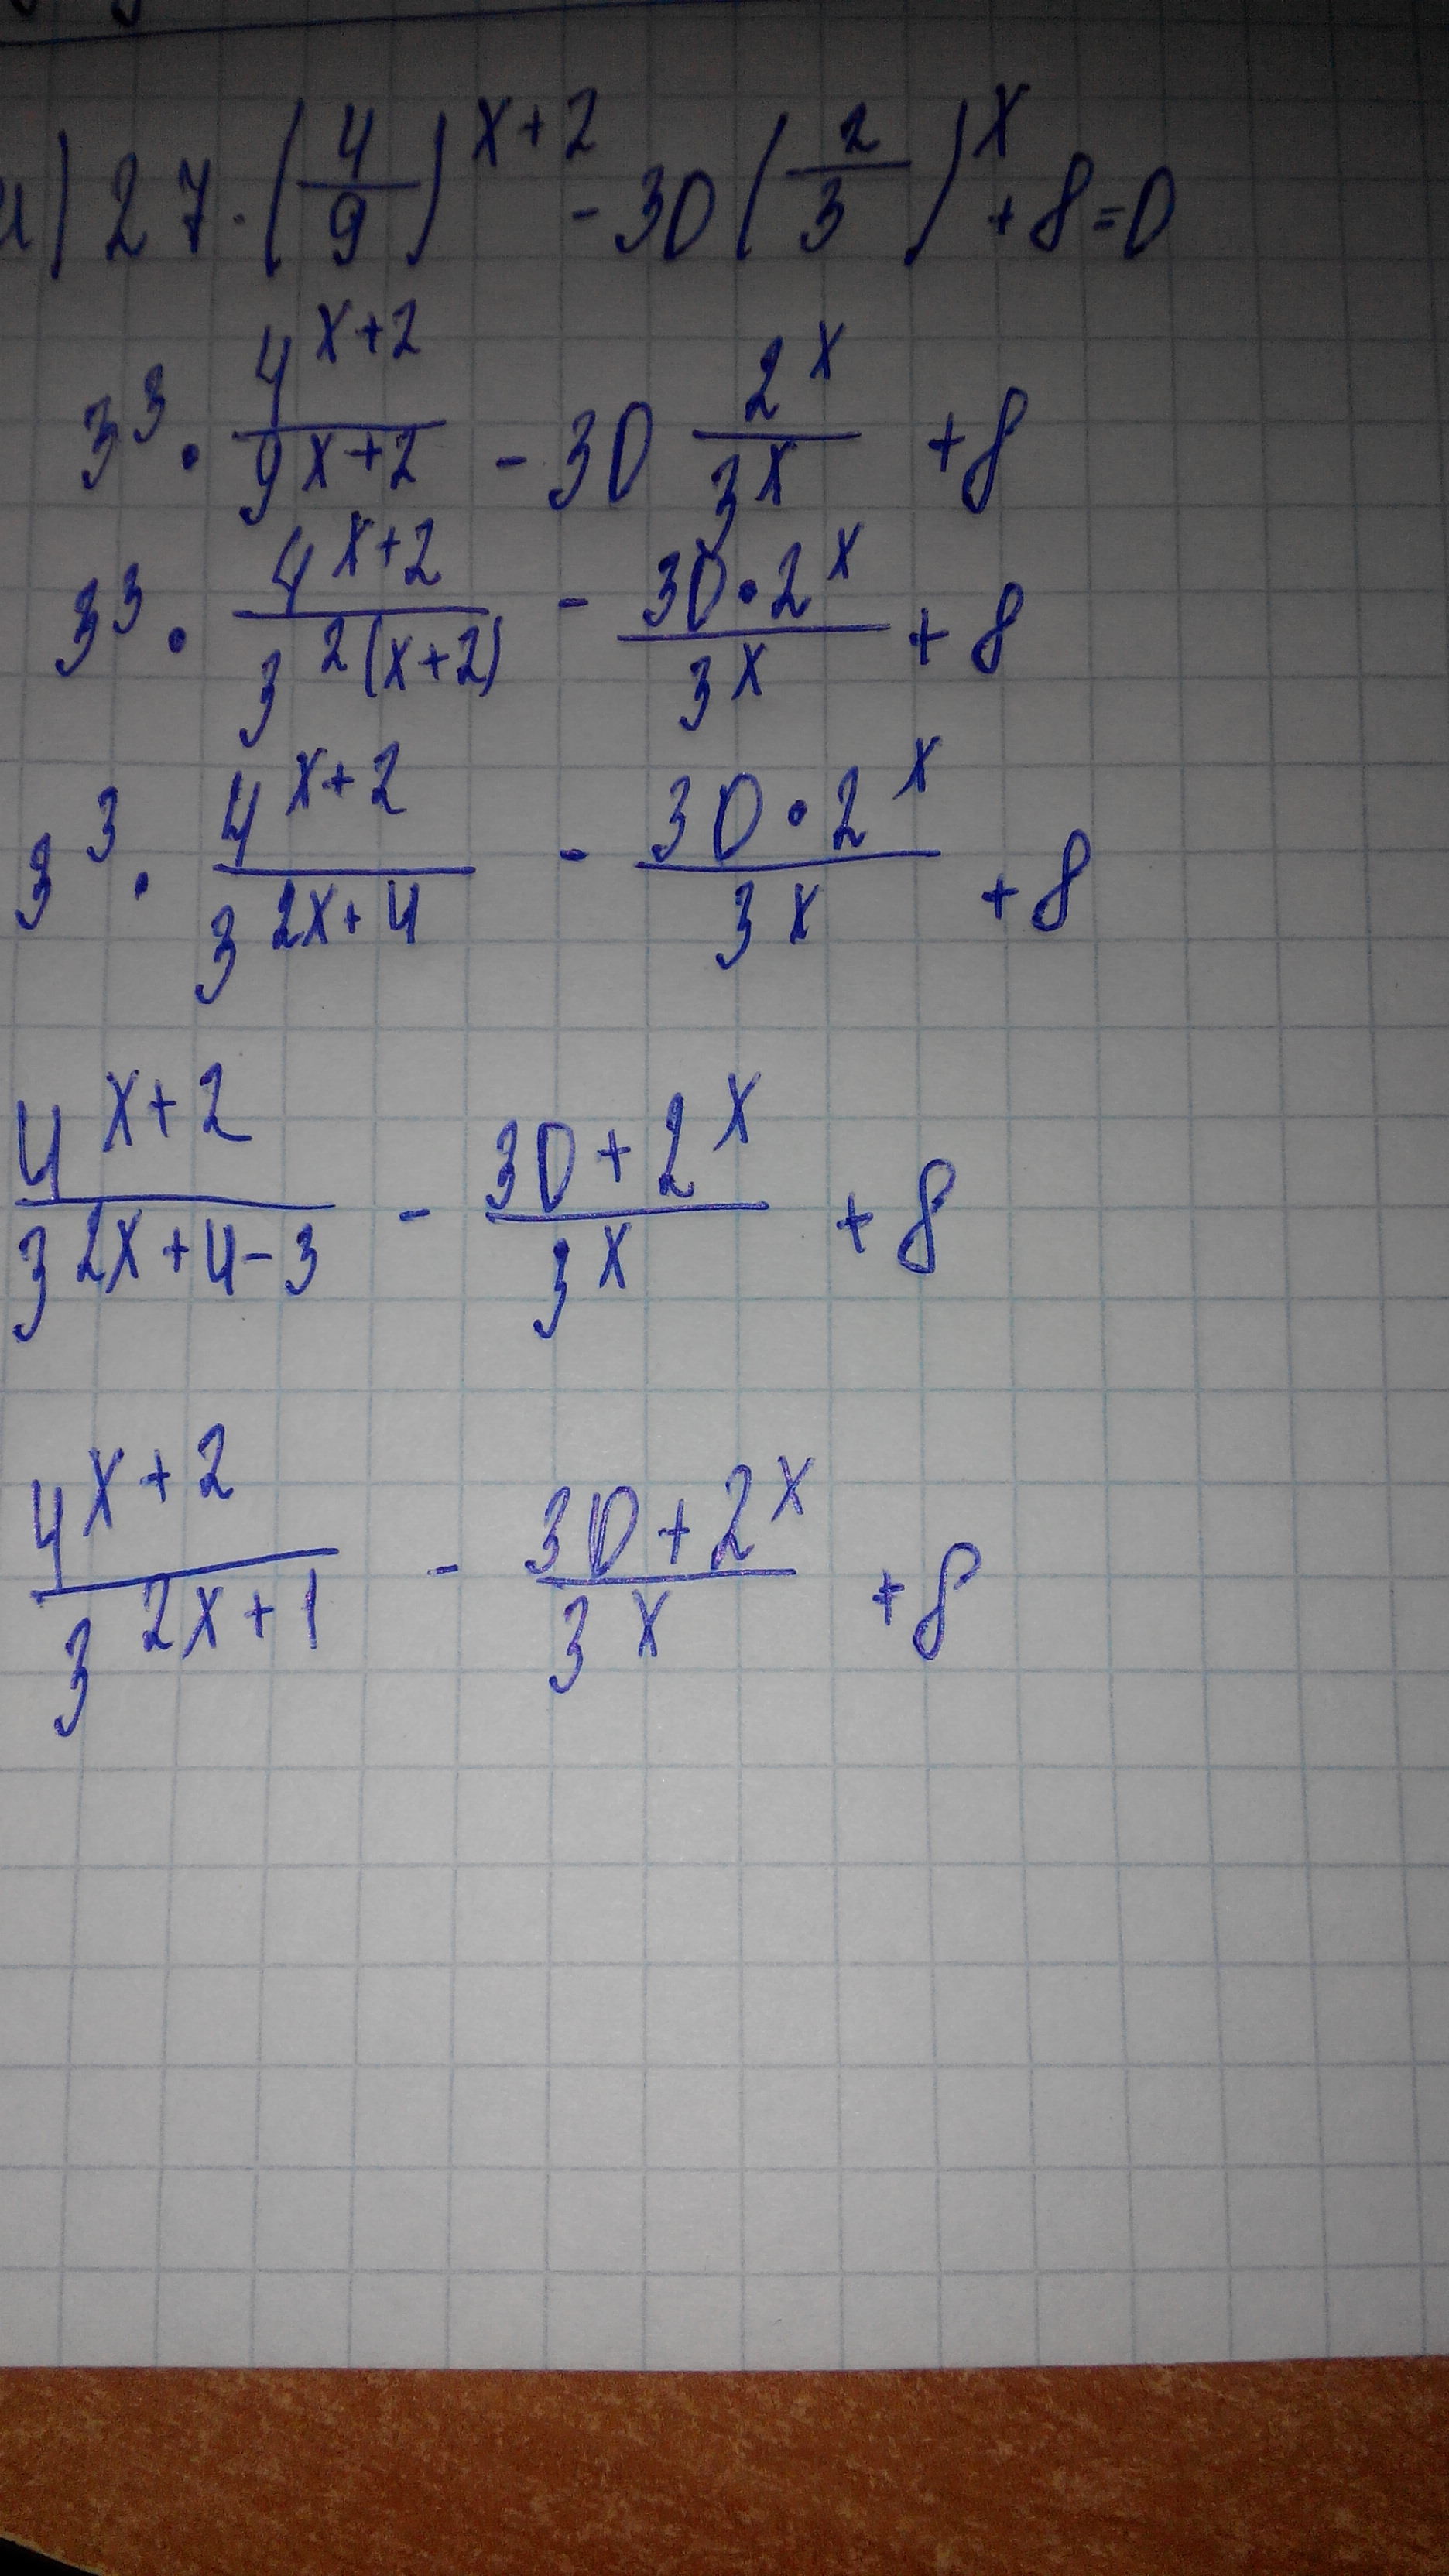 27·(4/9)^(x+2) - 30(2/3)^x + 8 = 0
3^3 · 4^(x+2)/9^(x+2) - 30 2^x/3^x + 8
3^3 · 4^(x+2)/3^(2(x+2)) - 30·2^x/3^x + 8
3^3 · 4^(x+2)/3^(2x+4) - 30·2^x/3^x + 8
4^(x+2)/3^(2x+4-3) - 30+2^x/3^x + 8
4^(x+2)/3^(2x+1) - 30+2^x/3^x + 8